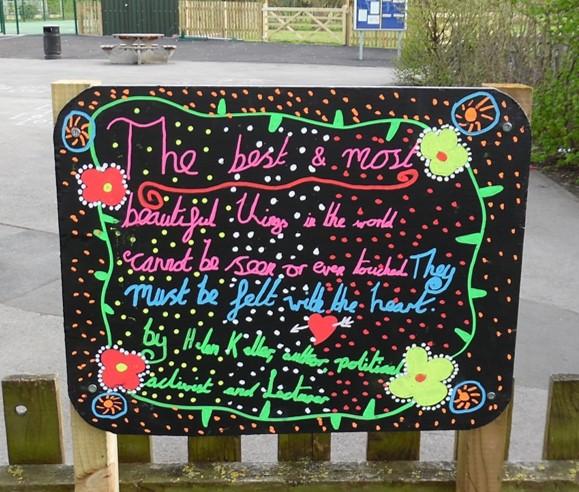 The best & most
beautiful things in the world
cannot be seen or even touched They
must be felt with the heart.
by Helen Keller, author political
activist and Lecturer